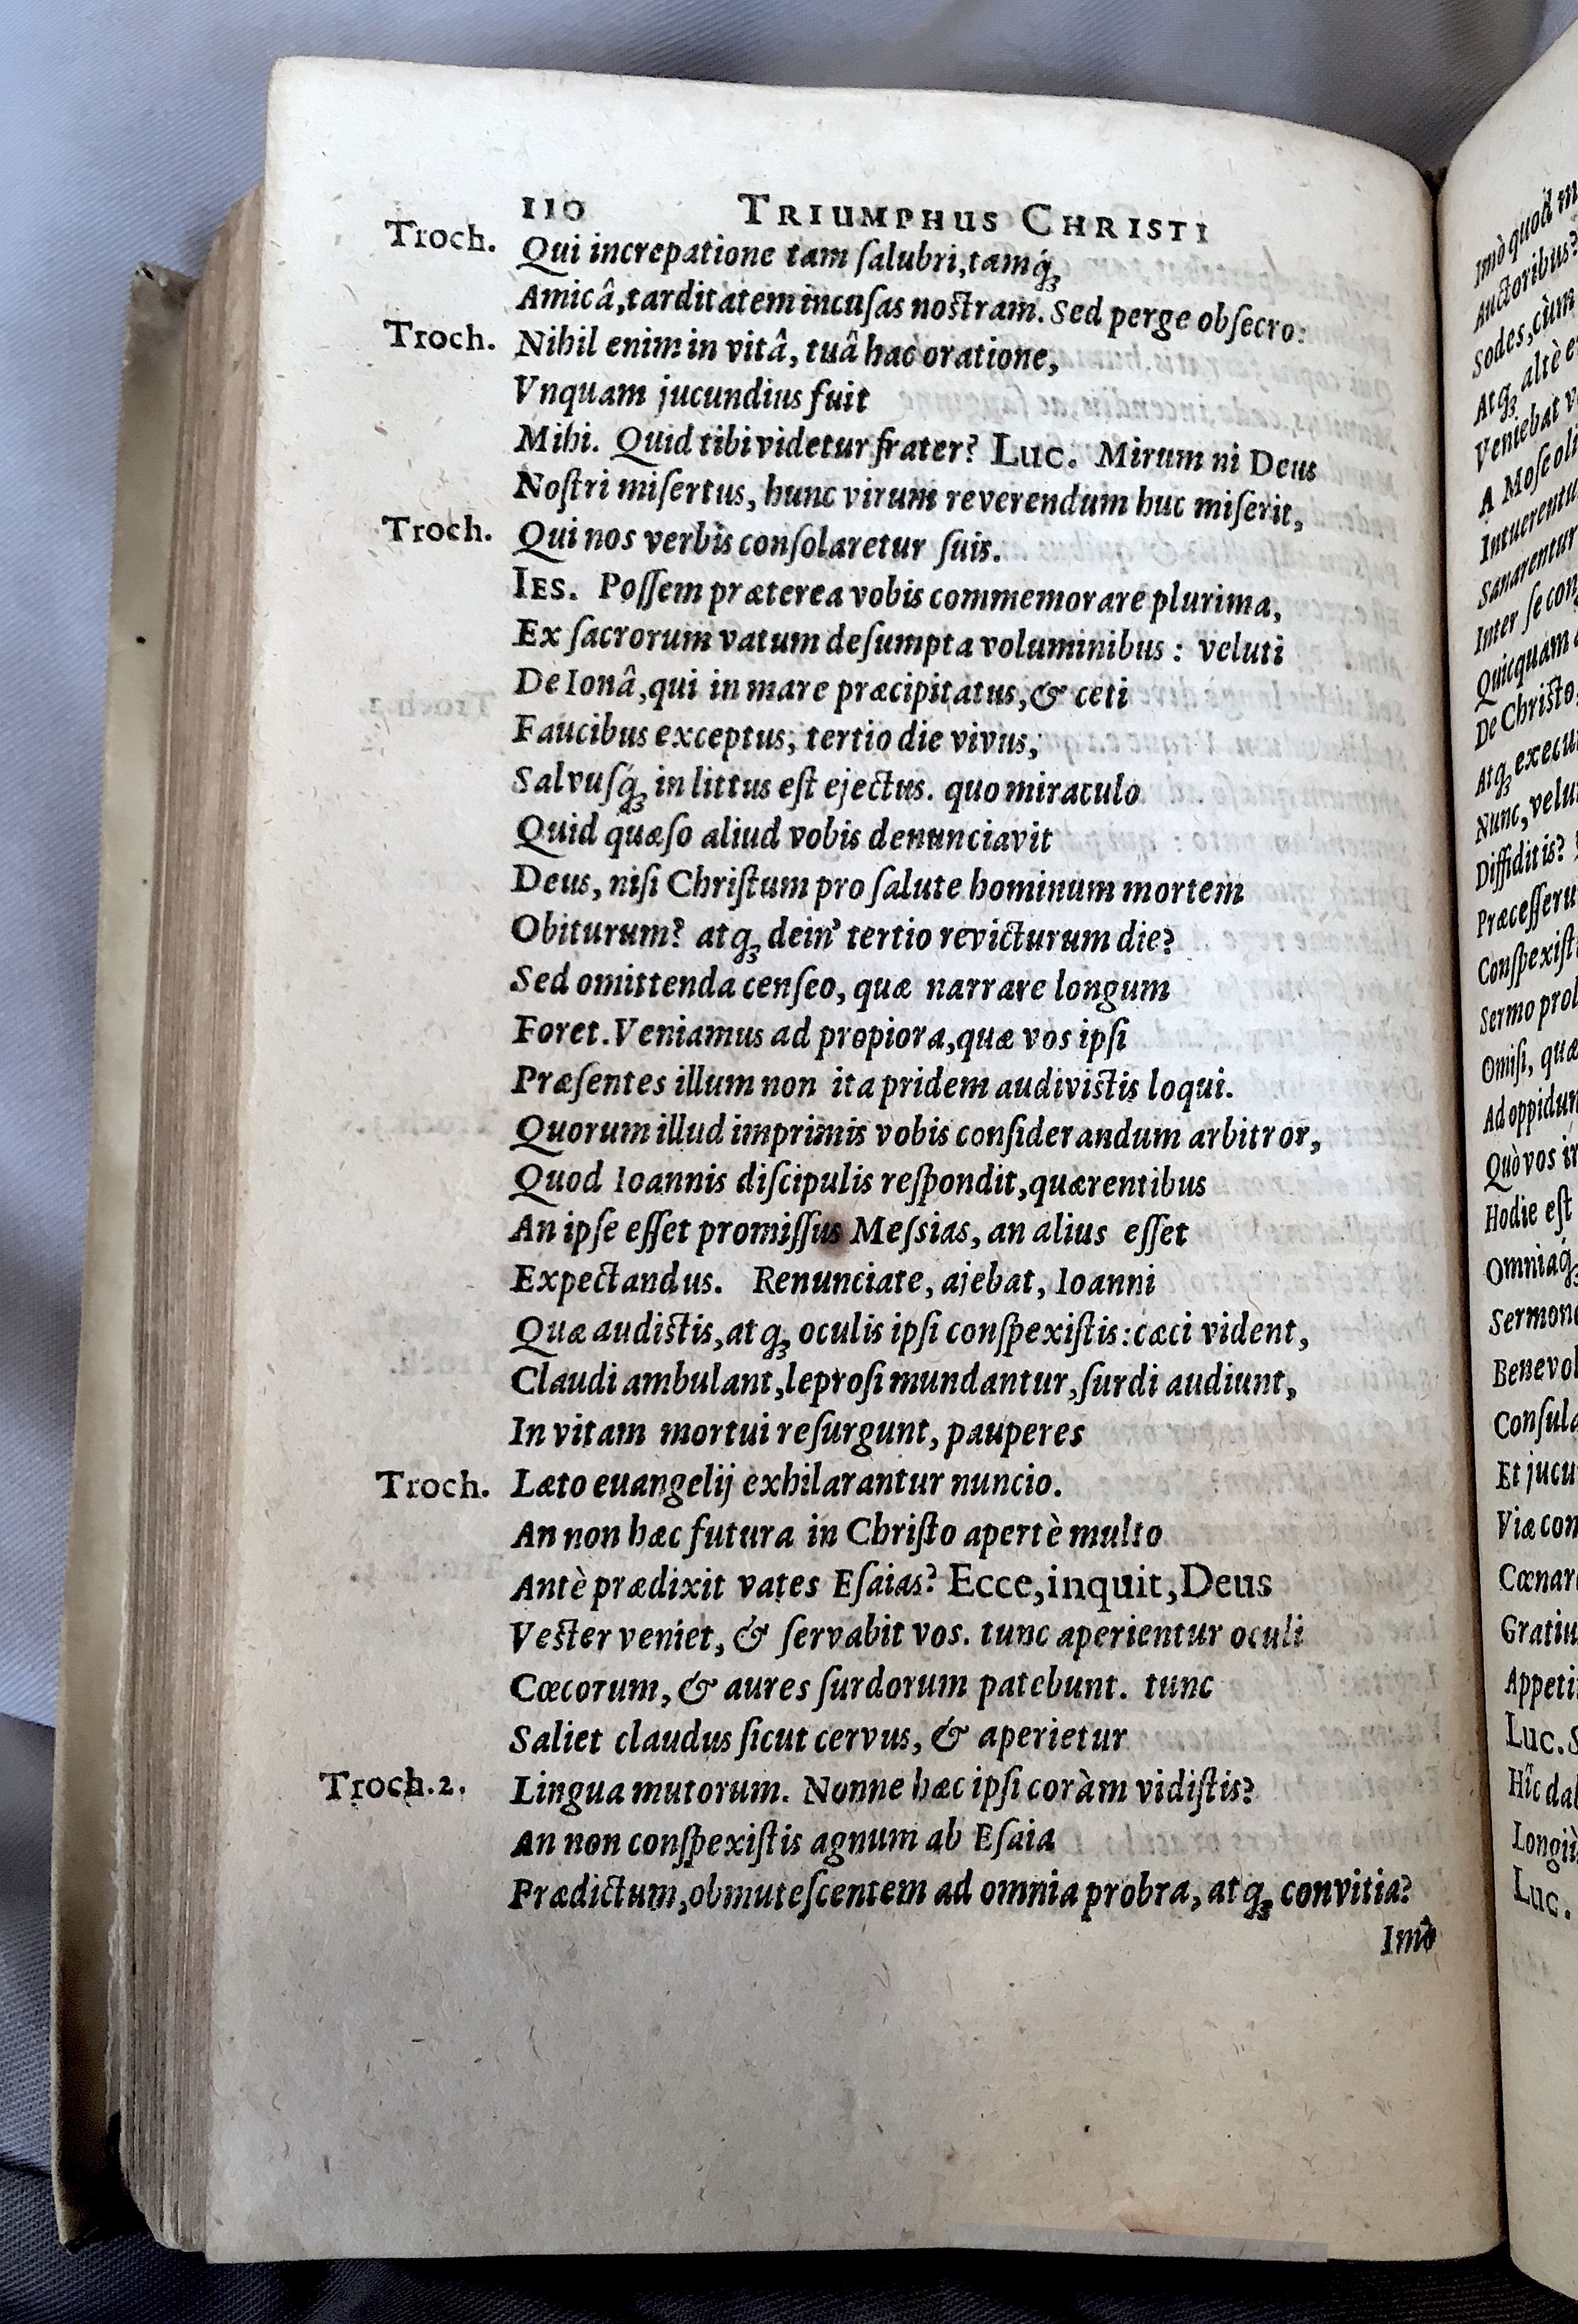 110 TRIUMPHUS CHRISTI
Troch. Qui increpatione tam ſalubri, tamq́ꝫ
Amicâ, tarditatem incuſas noſtram. Sed perge obſecro:
Troch. Nihil enim in vitâ, tuâ hac oratione,
Vnquam jucundius fuit
Mihi. Quid tibi videtur frater? Luc. Mirum ni Deus
Noſtri miſertus, hunc virum reverendum huc miſerit,
Troch. Qui nos verbis conſolaretur ſuis.
IES. Poſſem præterea vobis commemorare plurima,
Ex ſacrorum vatum deſumpta voluminibus: veluti
De Ionâ, qui in mare præcipitatus, & ceti
Faucibus exceptus, tertio die vivus,
Salvuſq́ꝫ in littus eſt ejectus. quo miraculo
Quid quæſo aliud vobis denunciavit
Deus, niſi Chriſtum pro ſalute hominum mortem
Obiturum? atqꝫ dein' tertio revicturum die?
Sed omittenda cenſeo, quæ narrare longum
Foret. Veniamus ad propiora, quæ vos ipſi
Præſentes illum non ita pridem audiviſtis loqui.
Quorum illud imprimis vobis conſiderandum arbitror,
Quod Ioannis diſcipulis reſpondit, quærentibus
An ipſe eſſet promiſſus Meſsias, an alius eſſet
Expectandus. Renunciate, ajebat, Ioanni
Quæ audiſtis, atqꝫ oculis ipſi conſpexiſtis: cæci vident,
Claudi ambulant, leproſi mundantur, ſurdi audiunt,
In vitam mortui reſurgunt, pauperes
Troch. Læto euangelij exhilarantur nuncio.
An non hæc futura in Chriſto apertè multo
Antè prædixit vates Eſaias? Ecce, inquit, Deus
Veſter veniet, & ſervabit vos. tunc aperientur oculi
Cœcorum, & aures ſurdorum patebunt. tunc
Saliet claudus ſicut cervus, & aperietur
Troch.2. Lingua mutorum. Nonne hæc ipſi coràm vidiſtis?
An non conſpexiſtis agnum ab Eſaia
Prædictum, obmuteſcentem ad omnia probra, atqꝫ convitia?
Imò
Imò quod
Auctoribus?
Sodes, cùm
Atqꝫ altè
Veniebat
A Moſe
Intuerentu
Sanarentur
Inter ſe con
Quicquam
De Chriſto
Atqꝫ execu
Nunc, velu
Diffiditis?
Præceſſeru
Conſpexiſt
Sermo prol
Omiſi, quæ
Ad oppidum
Quò vos
Hodie eſt
Omniaq́ꝫ
Sermone
Benevol
Conſula
Et jucu
Viæ con
Cœnar
Gratiu
Appeti
Luc. S
Hîc dal
Longiù
Luc.